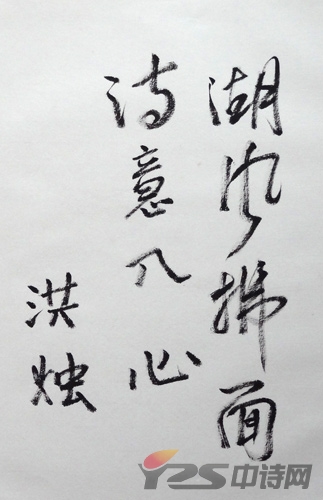 湖风拂面
诗意入心
洪烛
YZS中诗网